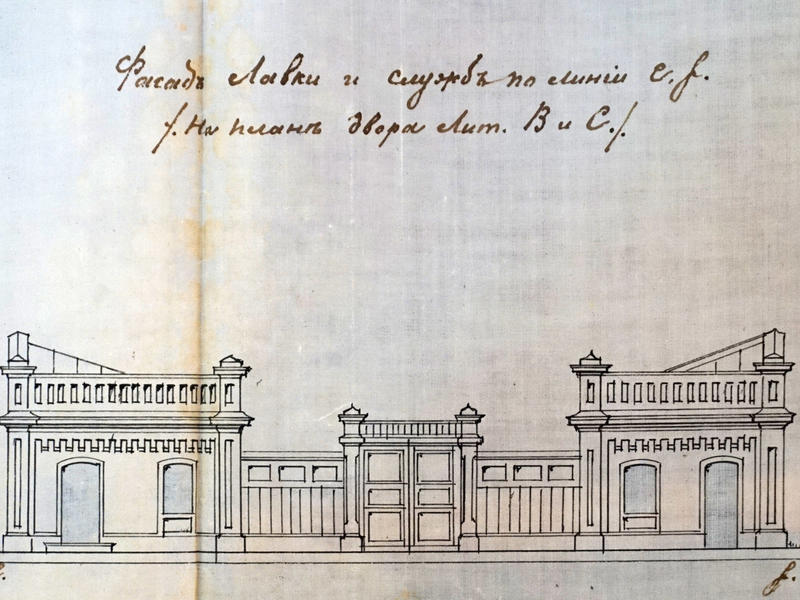 Фасадъ Лавки и службъ по линіи e. f.
/. На планѣ двора Лит. B и C. /.
e.
f.